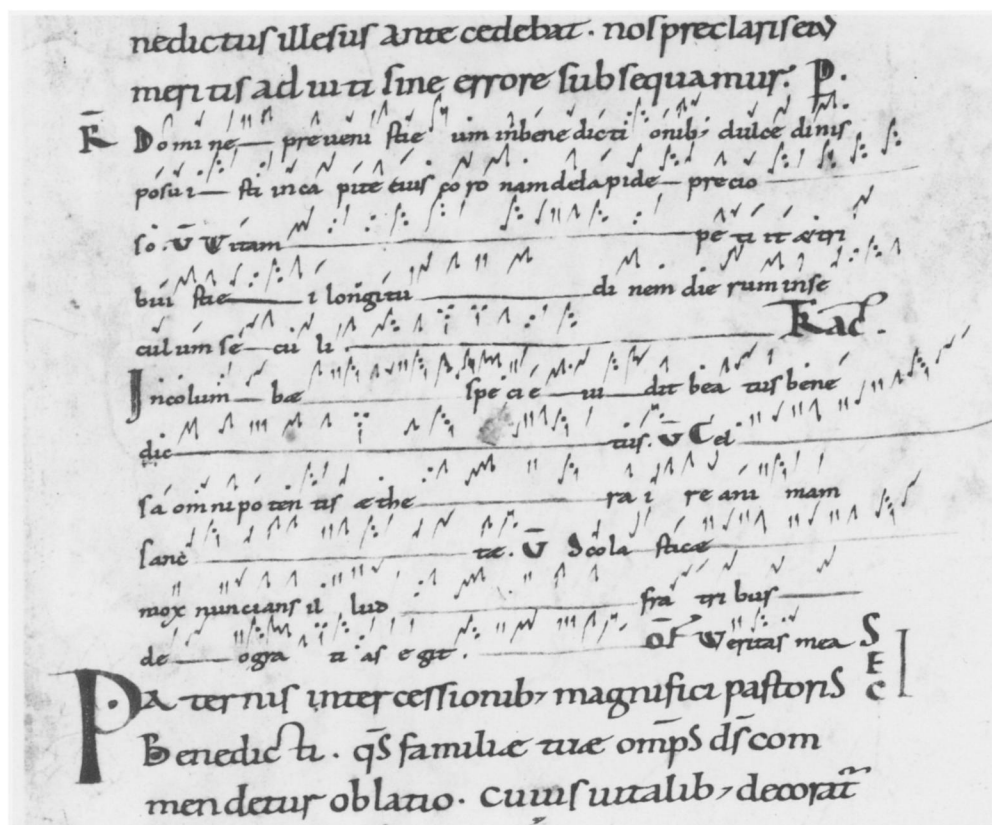 nedictus illesus ante cedebat. nos preclaris eiꝰ
meritis ad uiti sine errore subsequamur. P.
R̄ Domine preuenisti eum in benedictionib; dulcedinis
posuisti in capite eius coronam de lapide precio
so. V̄ Vitam petiit et tri
buisti ei longitu dinem dierum in se
culum seculi R ad.
Incolum bæ specie uidit beatus bene
dic tus. V̄ Cel
sa omnipotentis æthe ra ire animam
sanc tæ. V̄ Scolasticæ
mox nuncians illud fratribus
deo gratias egit. Of Veritas mea SEC
Paternis intercessionib; magnifici pastoris
Benedicti. qs̄ familiæ tuæ omp̄s ds̄ com
mendetur oblatio. cuius uitalib; decorat̄